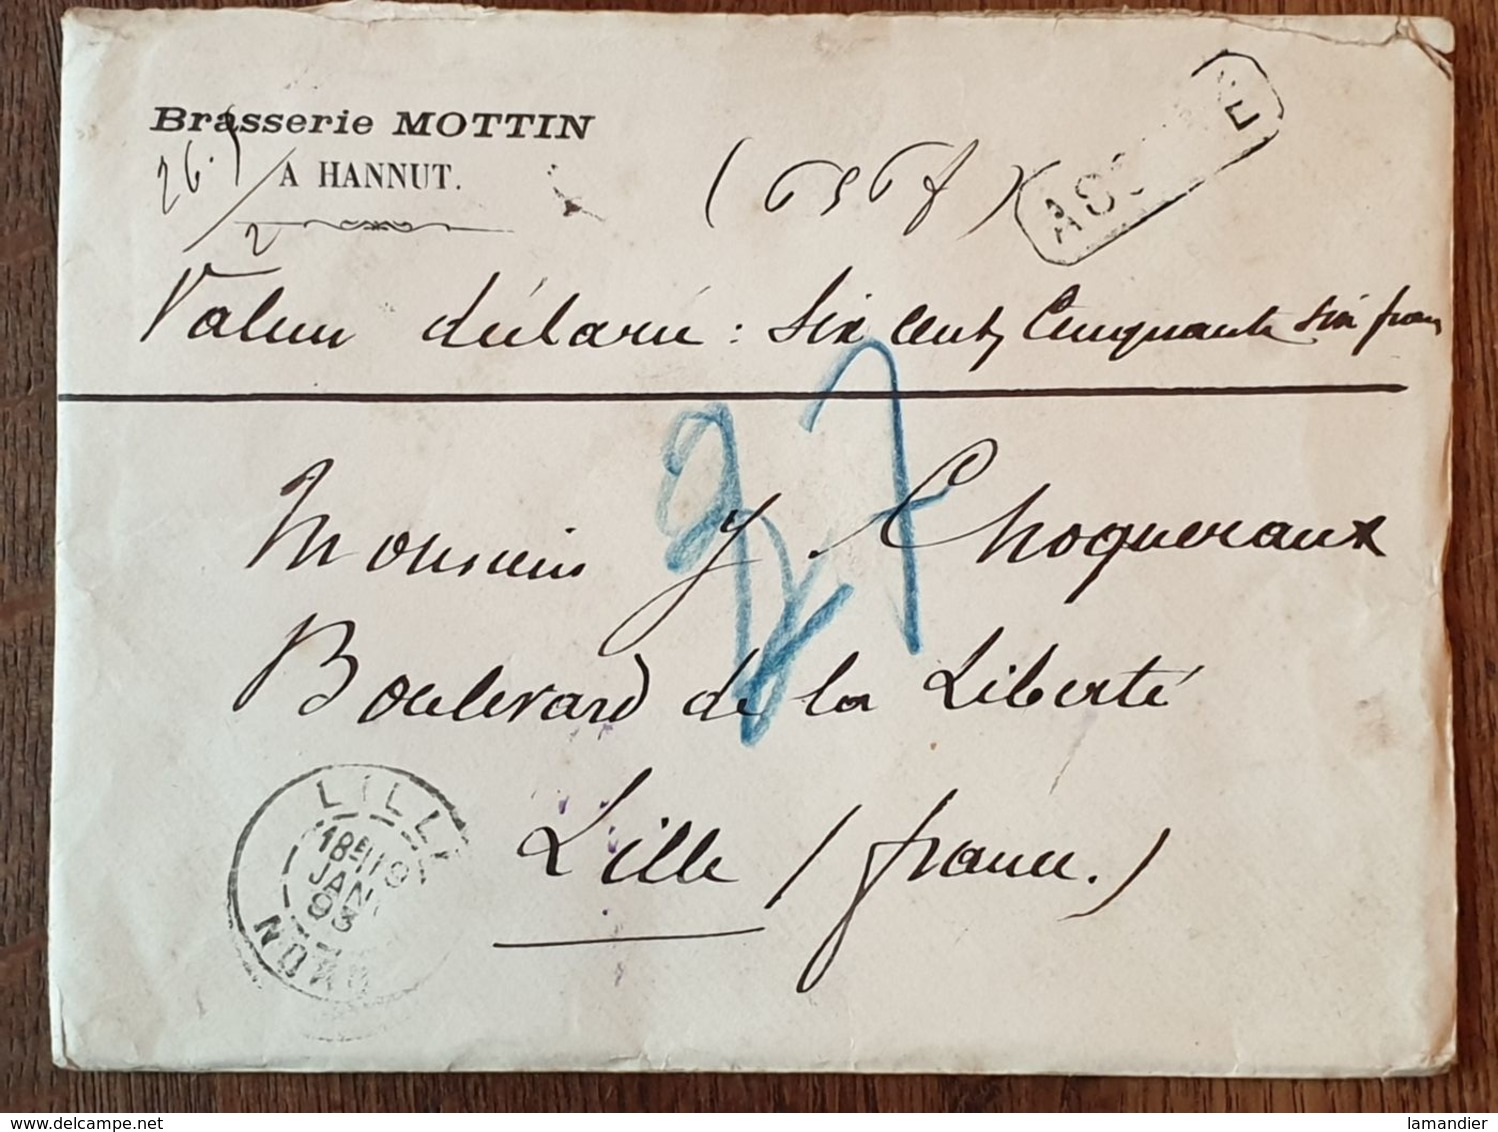 Brasserie MOTTIN
A HANNUT.
26.
2
(656 f)
Valeur déclarée : Six cent Cinquante six francs
27
Monsieur J. Choqueraux
Boulevard de la Liberté
Lille (france.)
LILLE
18E/19
JANV
93
NORD
delcampe.net
lamandier